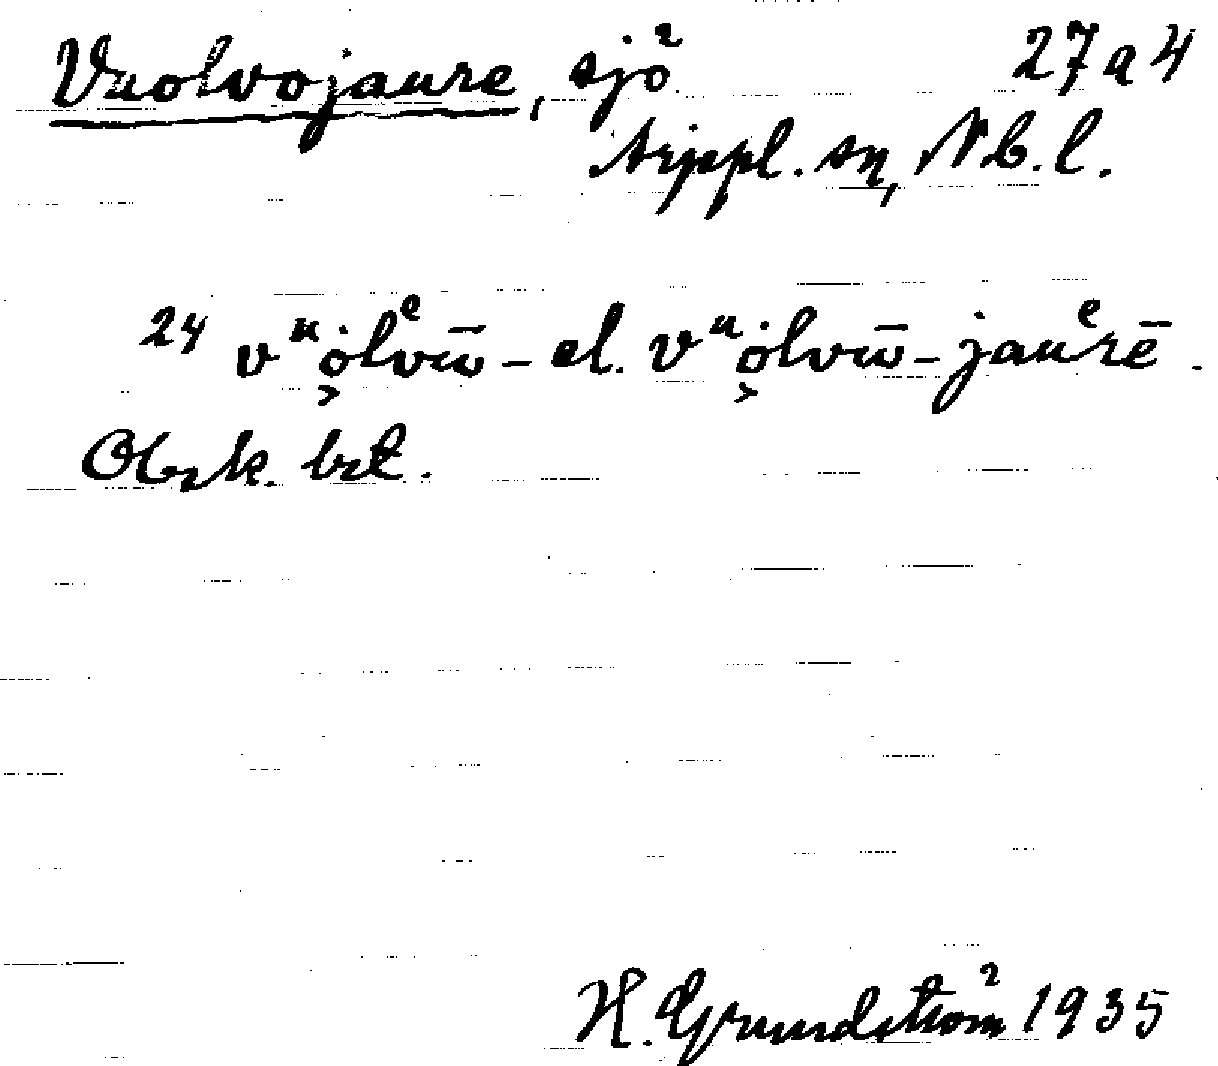 Vuolvojaure, sjö 27a4
Arjeppl. sn, Nb. l.
24 vᵘȯ̭lᵉvω̄ - el. vᵘȯ̭lvω̄ - jauᵉrē.
Obek. bet.
H. Grundström 1935